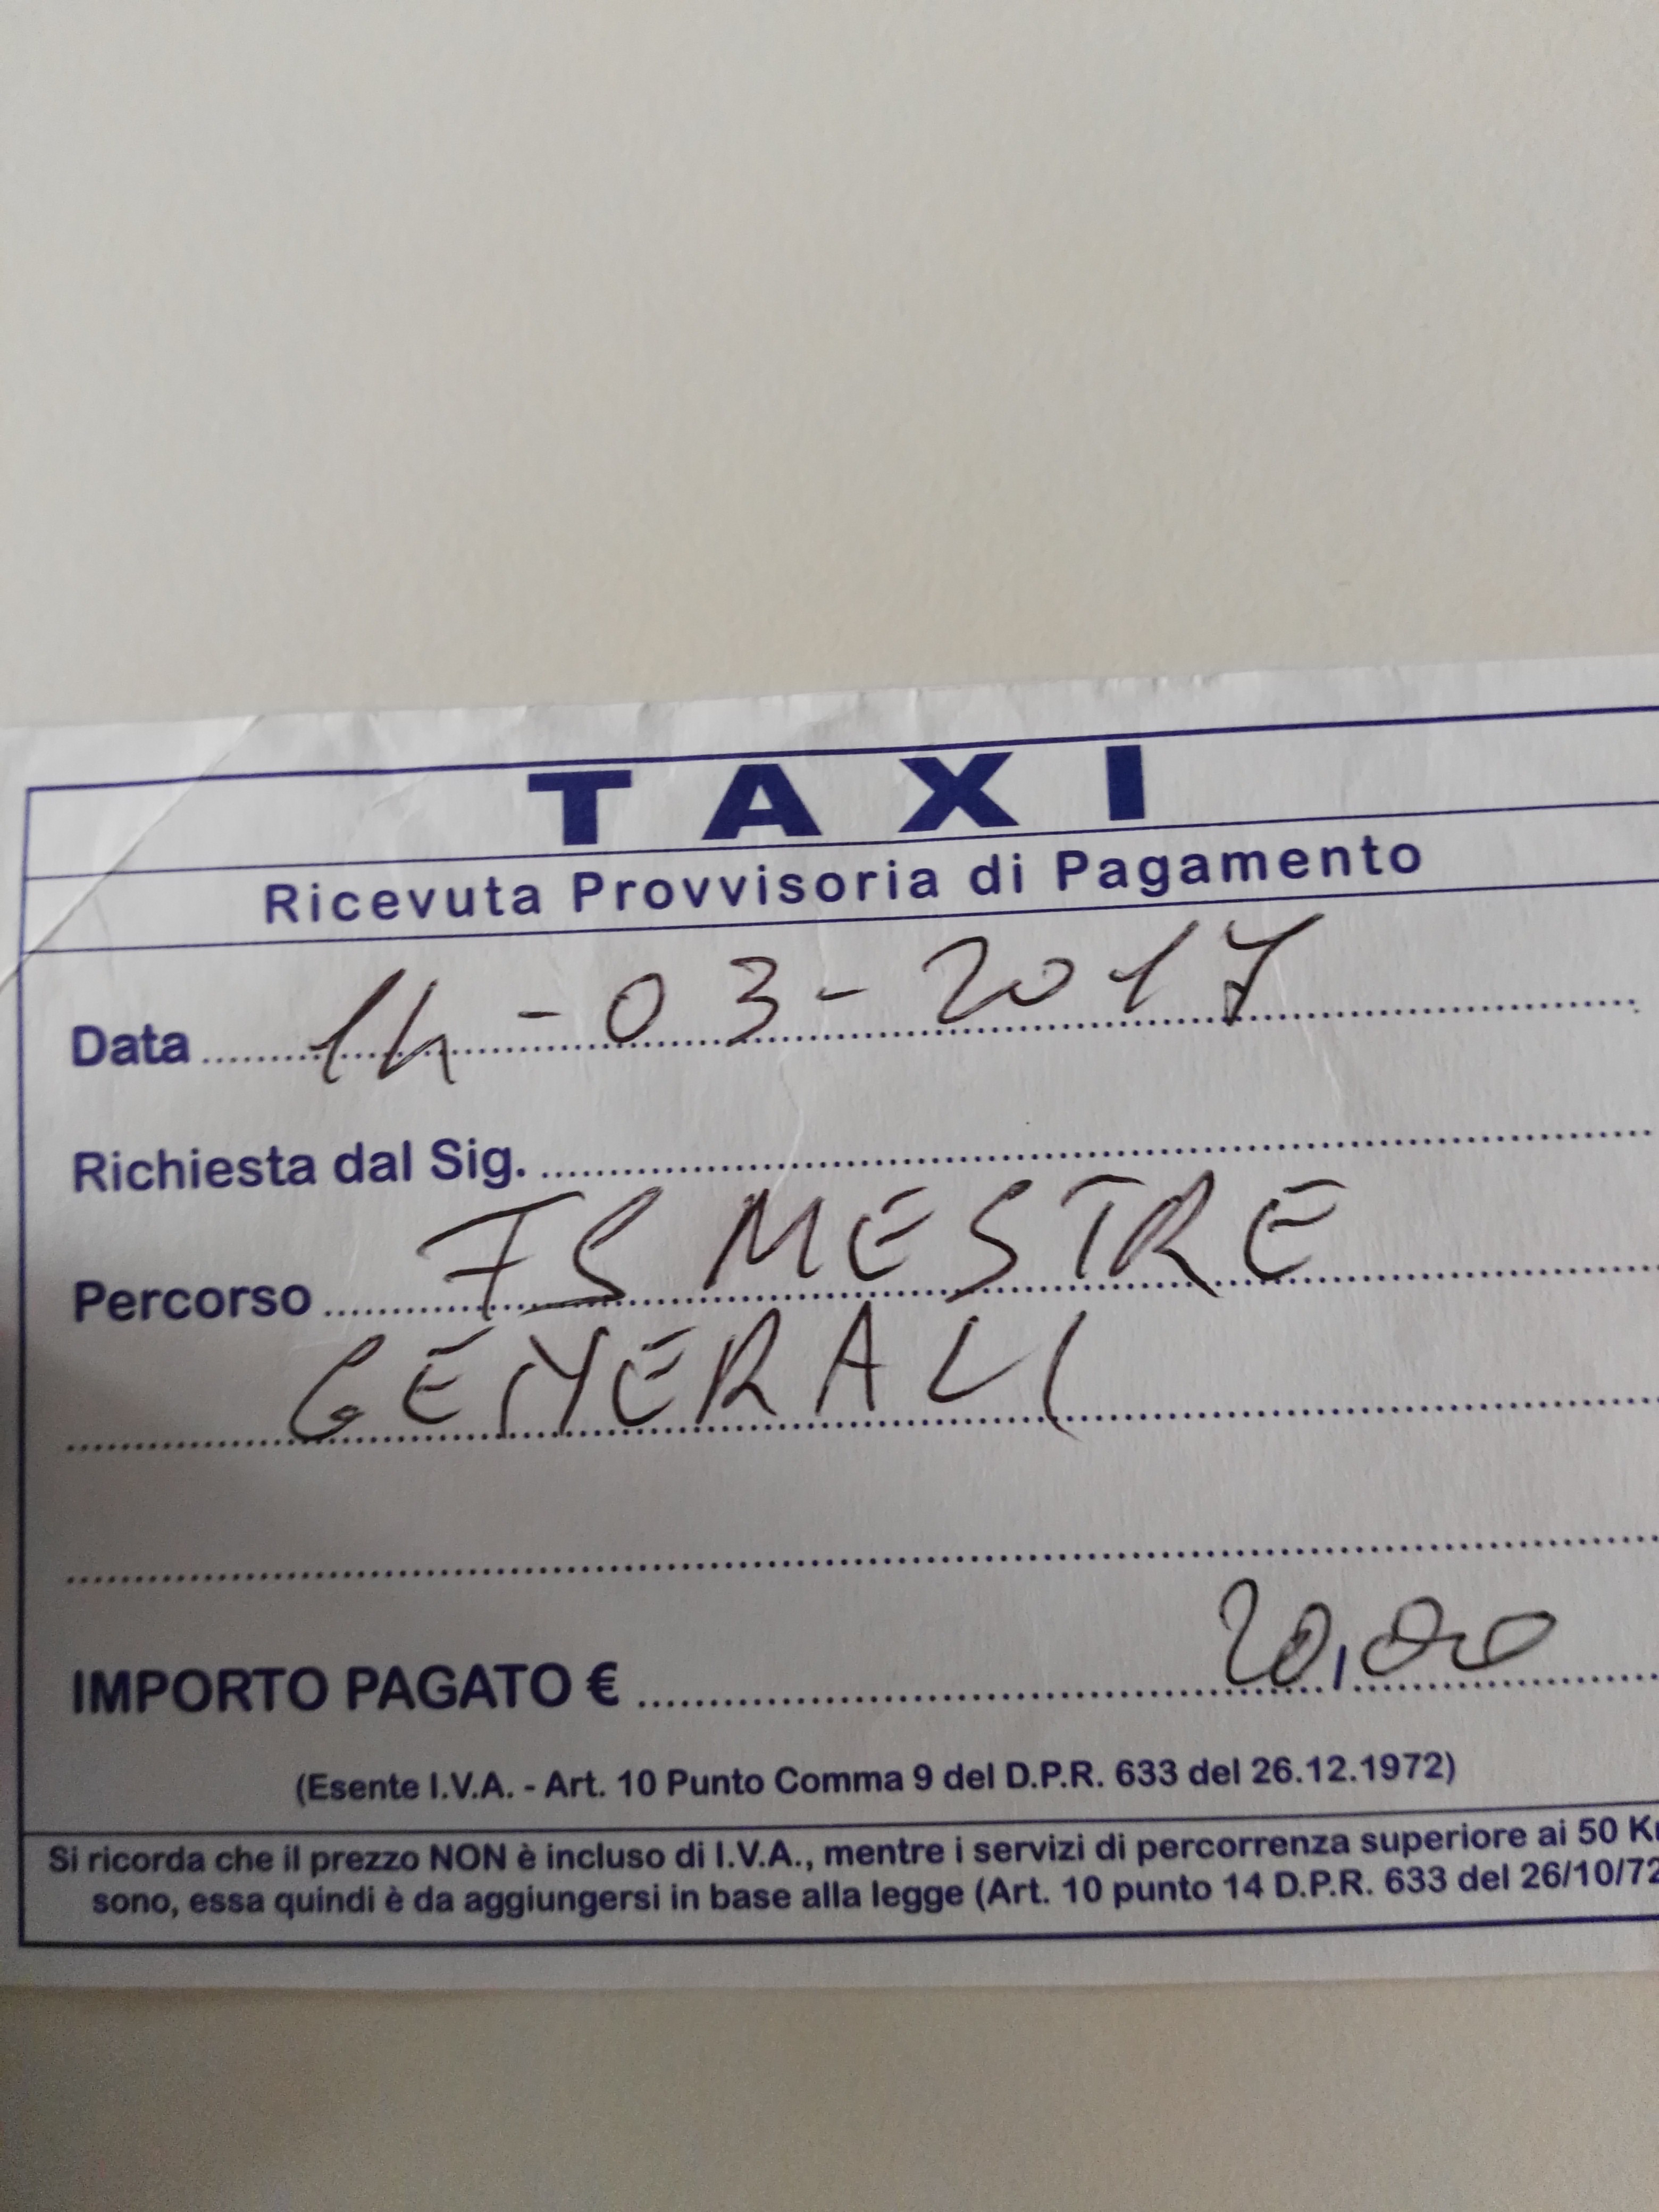 TAXI
Ricevuta Provvisoria di Pagamento
Data 14-03-2017
Richiesta dal Sig.
Percorso FS MESTRE
GENERALI
IMPORTO PAGATO € 20,00
(Esente I.V.A. - Art. 10 Punto Comma 9 del D.P.R. 633 del 26.12.1972)
Si ricorda che il prezzo NON è incluso di I.V.A., mentre i servizi di percorrenza superiore ai 50 K
sono, essa quindi è da aggiungersi in base alla legge (Art. 10 punto 14 D.P.R. 633 del 26/10/72